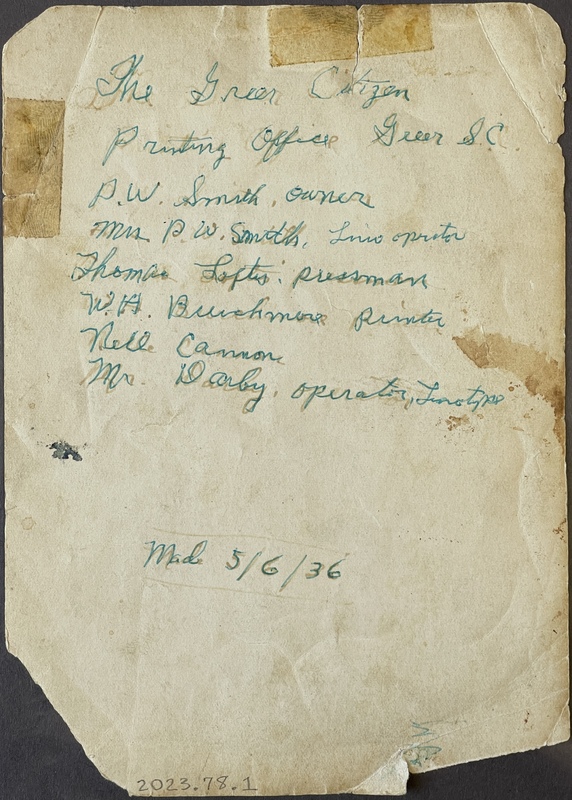 The Greer Citizen
Printing Office Greer S.C.
P.W. Smith, owner
Mrs P.W. Smith, Lino oprator
Thomas Lofts, pressman
W.H. Burchmore printer
Nell Cannon
Mr. Darby, operator, Linotype
Mad 5/6/36
2023.78.1